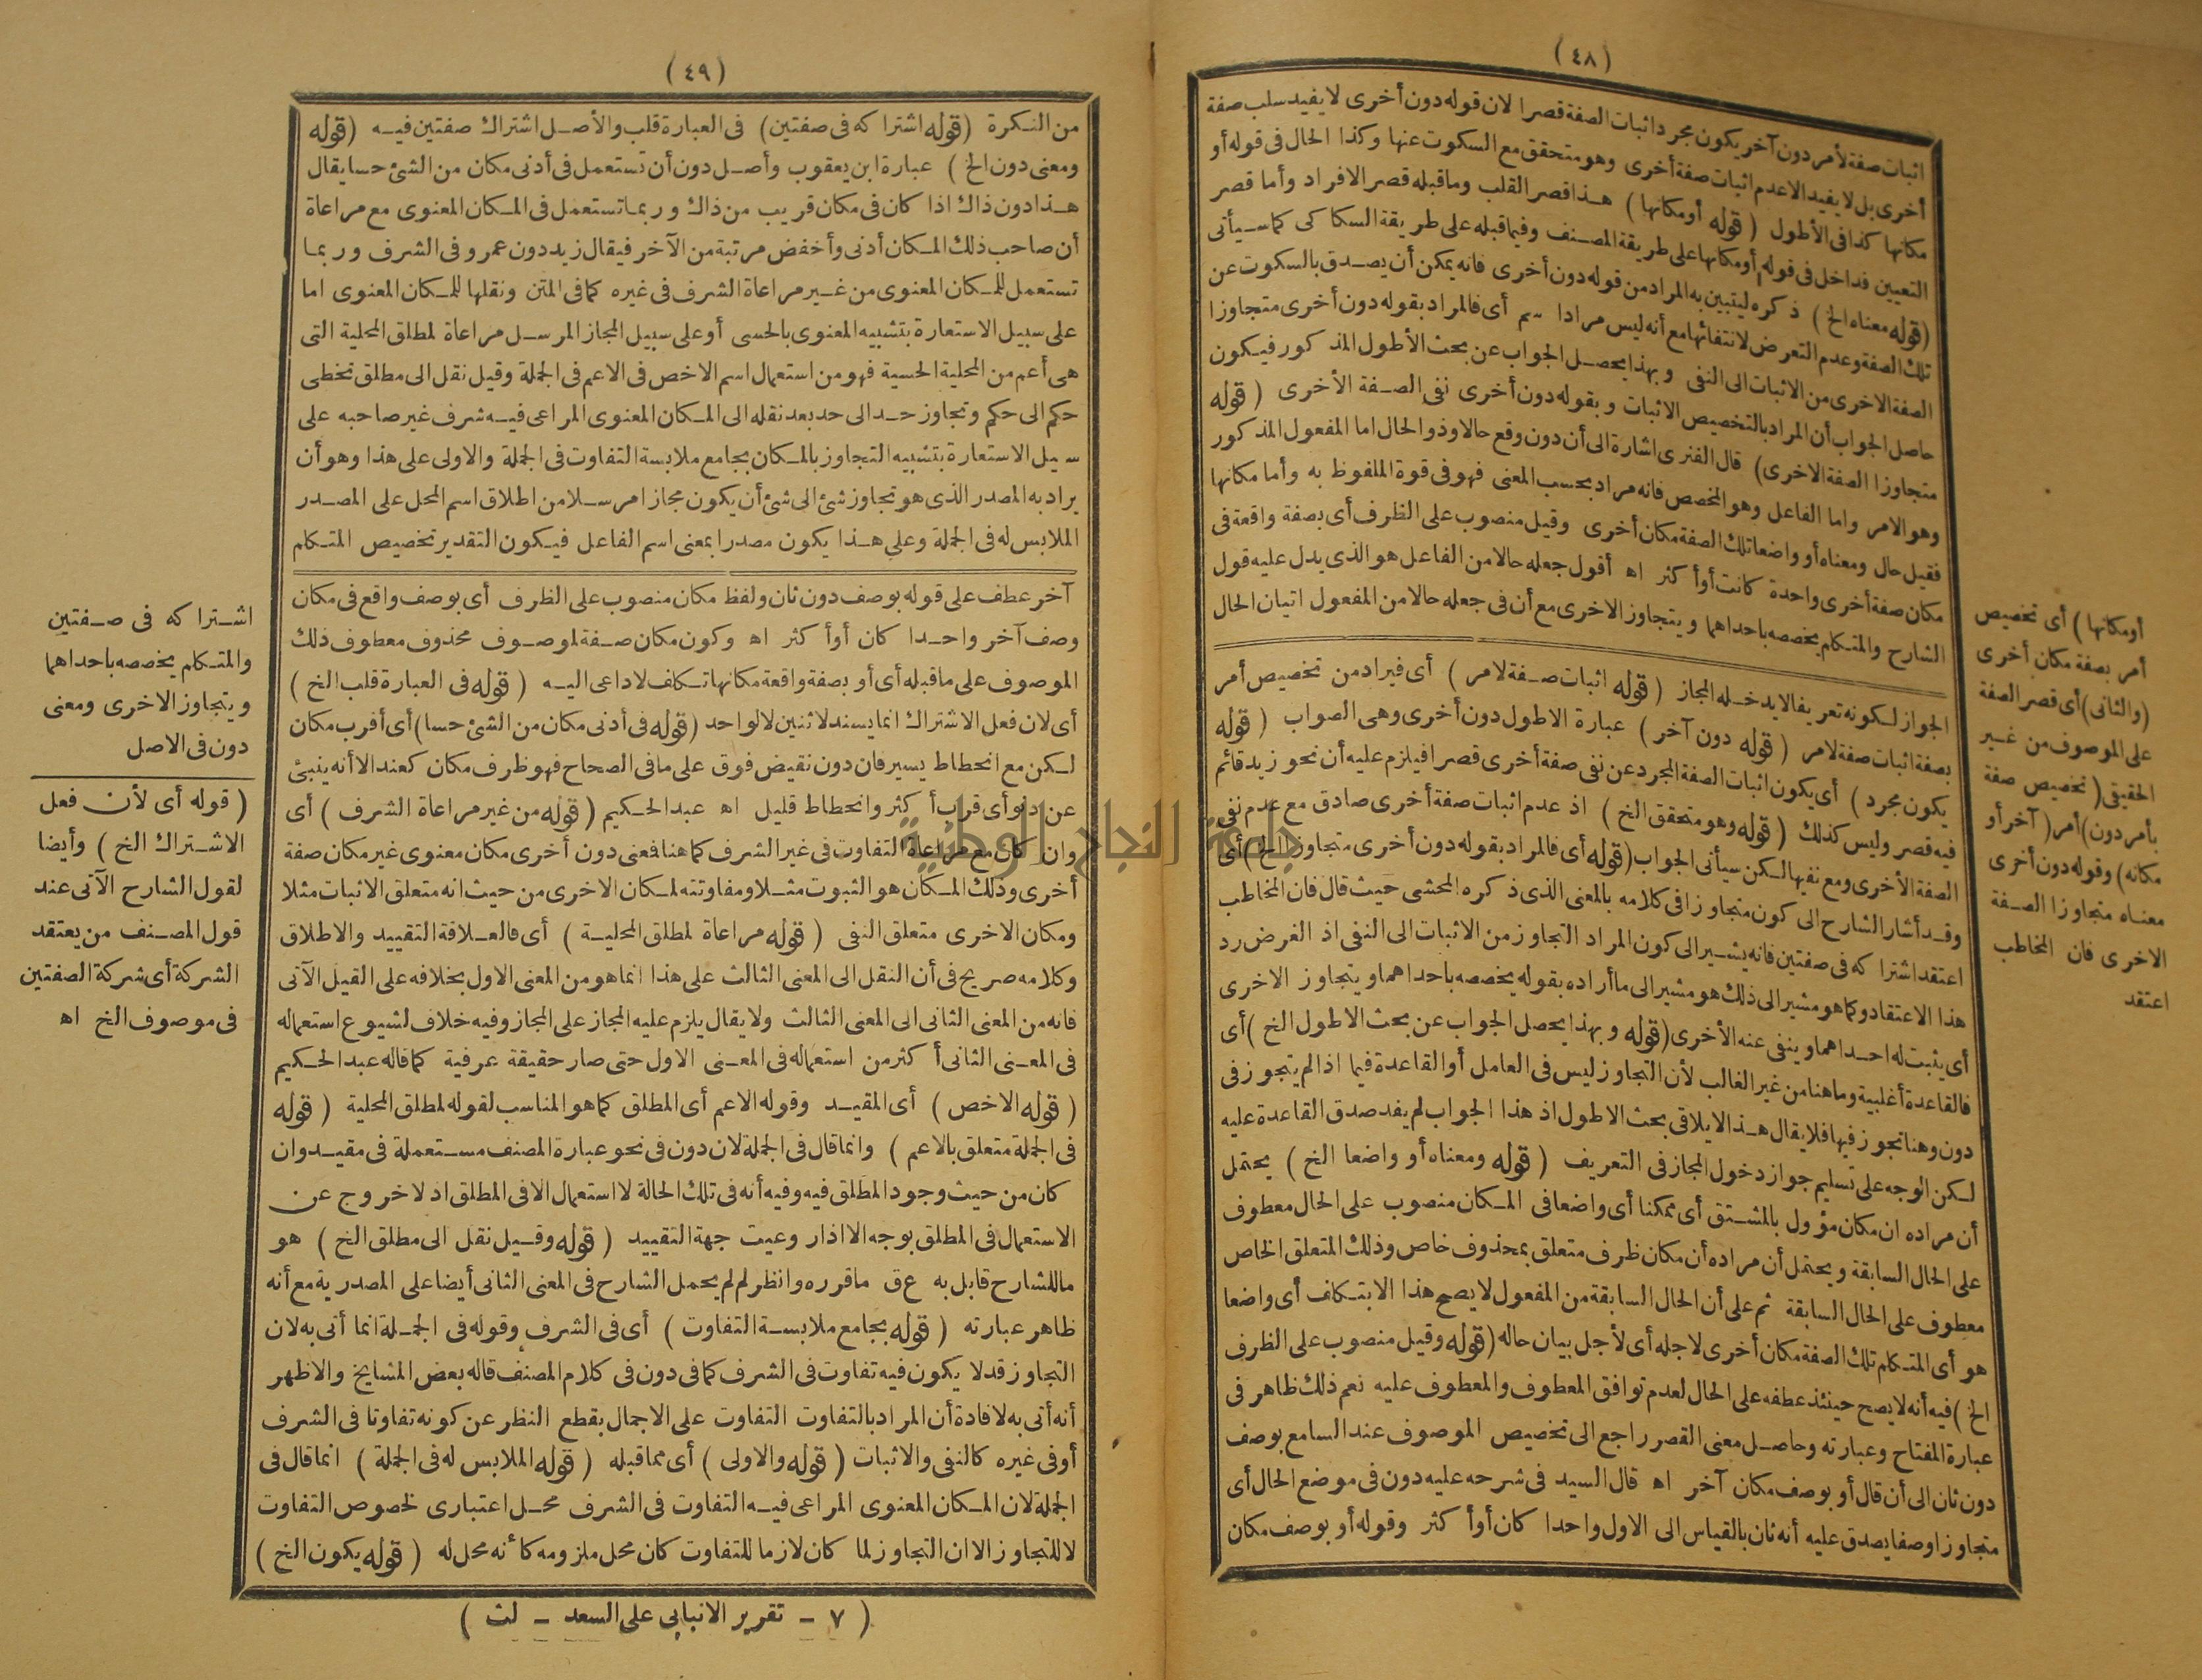 (٤٨)
اثبات صفة لأمر دون آخر يكون مجرد اثبات الصفة قصرا لان قوله دون أخرى لا يفيد سلب صفة
أخرى بل لا يفيد الا عدم اثبات صفة أخرى وهو متحقق مع السكوت عنها وكذا الحال فى قوله أو
مكانها كذا فى الأطول (قوله أو مكانها) هذا قصر القلب وما قبله قصر الافراد وأما قصر
التعيين فداخل فى قوله أو مكانها على طريقة المصنف وفيما قبله على طريقة السكاكى كما سيأتى
(قوله معناه الخ) ذكره ليتبين به المراد من قوله دون أخرى فانه يمكن أن يصدق بالسكوت عن
تلك الصفة وعدم التعرض لانتفائها مع أنه ليس مرادا سم أى فالمراد بقوله دون أخرى متجاوزا
الصفة الاخرى من الاثبات الى النفى وبهذا يحصل الجواب عن بحث الأطول المذكور فيكون
حاصل الجواب أن المراد بالتخصيص الاثبات وبقوله دون أخرى نفى الصفة الأخرى (قوله
متجاوزا الصفة الاخرى) قال الفنرى اشارة الى أن دون وقع حالا وذو الحال اما المفعول المذكور
وهو الامر واما الفاعل وهو المخصص فانه مراد بحسب المعنى فهو فى قوة الملفوظ به وأما مكانها
فقيل حال ومعناه أو واضعا تلك الصفة مكان أخرى وقيل منصوب على الظرف أى بصفة واقعة فى
مكان صفة أخرى واحدة كانت أو أكثر اه أقول جعله حالا من الفاعل هو الذى يدل عليه قول
الشارح والمتكلم يخصصه باحداهما ويتجاوز الاخرى مع أن فى جعله حالا من المفعول اتيان الحال
الجواز لكونه تعريفا لا يدخله المجاز (قوله اثبات صفة لامر) أى فيراد من تخصيص أمر
بصفة اثبات صفة لامر (قوله دون آخر) عبارة الاطول دون أخرى وهى الصواب (قوله
يكون مجرد) أى يكون اثبات الصفة المجرد عن نفى صفة أخرى قصرا فيلزم عليه أن نحو زيد قائم
فيه قصر وليس كذلك (قوله وهو متحقق الخ) اذ عدم اثبات صفة أخرى صادق مع عدم نفى
الصفة الأخرى ومع نفيها لكن سيأتى الجواب (قوله أى فالمراد بقوله دون أخرى متجاوزا الخ) أى
وقد أشار الشارح الى كون متجاوزا فى كلامه بالمعنى الذى ذكره المحشى حيث قال فان المخاطب
اعتقد اشتراكه فى صفتين فانه يشير الى كون المراد التجاوز من الاثبات الى النفى اذ الغرض رد
هذا الاعتقاد وكما هو مشير الى ذلك هو مشير الى ما أراده بقوله يخصصه باحداهما ويتجاوز الاخرى
أى يثبت له احداهما وينفى عنه الأخرى (قوله وبهذا يحصل الجواب عن بحث الاطول الخ) أى
فالقاعدة أغلبية وما هنا من غير الغالب لأن التجاوز ليس فى العامل أو القاعدة فيما اذا لم يتجوز فى
دون وهنا تجوز فيها فلا يقال هذا لا يلاقى بحث الاطول اذ هذا الجواب لم يفد صدق القاعدة عليه
لكن الوجه على تسليم جواز دخول المجاز فى التعريف (قوله ومعناه أو واضعا الخ) يحتمل
أن مراده ان مكان مؤول بالمشتق أى ممكنا أى واضعا فى المكان منصوب على الحال معطوف
على الحال السابقة ويحتمل أن مراده أن مكان ظرف متعلق بمحذوف خاص وذلك المتعلق الخاص
معطوف على الحال السابقة ثم على أن الحال السابقة من المفعول لا يصح هذا الا بتكلف أى واضعا
هو أى المتكلم تلك الصفة مكان أخرى لاجله أى لأجل بيان حاله (قوله وقيل منصوب على الظرف
الخ) فيه أنه لا يصح حينئذ عطفه على الحال لعدم توافق المعطوف والمعطوف عليه نعم ذلك ظاهر فى
عبارة المفتاح وعبارته وحاصل معنى القصر راجع الى تخصيص الموصوف عند السامع بوصف
دون ثان الى أن قال أو بوصف مكان آخر اه قال السيد فى شرحه عليه دون فى موضع الحال أى
متجاوزا وصفا يصدق عليه أنه ثان بالقياس الى الاول واحدا كان أو أكثر وقوله أو بوصف مكان
أو مكانها) أى تخصيص
أمر بصفة مكان أخرى
(والثانى) أى قصر الصفة
على الموصوف من غير
الحقيقى (تخصيص صفة
بأمر دون) أمر (آخر أو
مكانه) وقوله دون أخرى
معناه متجاوزا الصفة
الاخرى فان المخاطب
اعتقد
(٤٩)
من النكرة (قوله اشتراكه فى صفتين) فى العبارة قلب والأصل اشتراك صفتين فيه (قوله
ومعنى دون الخ) عبارة ابن يعقوب وأصل دون أن تستعمل فى أدنى مكان من الشئ حسا يقال
هذا دون ذاك اذا كان فى مكان قريب من ذاك وربما تستعمل فى المكان المعنوى مع مراعاة
أن صاحب ذلك المكان أدنى وأخفض مرتبة من الآخر فيقال زيد دون عمرو فى الشرف وربما
تستعمل للمكان المعنوى من غير مراعاة الشرف فى غيره كما فى المتن ونقلها للمكان المعنوى اما
على سبيل الاستعارة بتشبيه المعنوى بالحسى أو على سبيل المجاز المرسل مراعاة لمطلق المحلية التى
هى أعم من المحلية الحسية فهو من استعمال اسم الاخص فى الاعم فى الجملة وقيل نقل الى مطلق تخطى
حكم الى حكم وتجاوز حد الى حد بعد نقله الى المكان المعنوى المراعى فيه شرف غير صاحبه على
سبيل الاستعارة بتشبيه التجاوز بالمكان بجامع ملابسة التفاوت فى الجملة والاولى على هذا وهو أن
يراد به المصدر الذى هو تجاوز شئ الى شئ أن يكون مجازا مرسلا من اطلاق اسم المحل على المصدر
الملابس له فى الجملة وعلى هذا يكون مصدرا بمعنى اسم الفاعل فيكون التقدير تخصيص المتكلم
آخر عطف على قوله بوصف دون ثان ولفظ مكان منصوب على الظرف أى بوصف واقع فى مكان
وصف آخر واحدا كان أو أكثر اه وكون مكان صفة لموصوف محذوف معطوف ذلك
الموصوف على ما قبله أى أو بصفة واقعة مكانها تكلف لا داعى اليه (قوله فى العبارة قلب الخ)
أى لان فعل الاشتراك انما يسند لاثنين لا لواحد (قوله فى أدنى مكان من الشئ حسا) أى أقرب مكان
لكن مع انحطاط يسير فان دون نقيض فوق على ما فى الصحاح فهو ظرف مكان كعند الا أنه ينبئ
عن دنو أى قرب أكثر وانحطاط قليل اه عبد الحكيم (قوله من غير مراعاة الشرف) أى
وان كان مع مراعاة التفاوت فى غير الشرف كما هنا فمعنى دون أخرى مكان معنوى غير مكان صفة
أخرى وذلك المكان هو الثبوت مثلا ومفاوتته لمكان الاخرى من حيث انه متعلق الاثبات مثلا
ومكان الاخرى متعلق النفى (قوله مراعاة لمطلق المحلية) أى فالعلاقة التقييد والاطلاق
وكلامه صريح فى أن النقل الى المعنى الثالث على هذا انما هو من المعنى الاول بخلافه على القيل الآتى
فانه من المعنى الثانى الى المعنى الثالث ولا يقال يلزم عليه المجاز على المجاز وفيه خلاف لشيوع استعماله
فى المعنى الثانى أكثر من استعماله فى المعنى الاول حتى صار حقيقة عرفية كما قاله عبد الحكيم
(قوله الاخص) أى المقيد وقوله الاعم أى المطلق كما هو المناسب لقوله لمطلق المحلية (قوله
فى الجملة متعلق بالاعم) وانما قال فى الجملة لان دون فى نحو عبارة المصنف مستعملة فى مقيد وان
كان من حيث وجود المطلق فيه وفيه أنه فى تلك الحالة لا استعمال الا فى المطلق اذ لا خروج عن
الاستعمال فى المطلق بوجه الا اذا روعيت جهة التقييد (قوله وقيل نقل الى مطلق الخ) هو
ما للشارح قابل به ع ق ما قرره وانظر لم لم يحمل الشارح فى المعنى الثانى أيضا على المصدرية مع أنه
ظاهر عبارته (قوله بجامع ملابسة التفاوت) أى فى الشرف وقوله فى الجملة انما أتى به لان
التجاوز قد لا يكون فيه تفاوت فى الشرف كما فى دون فى كلام المصنف قاله بعض المشايخ والاظهر
أنه أتى به لافادة أن المراد بالتفاوت التفاوت على الاجمال بقطع النظر عن كونه تفاوتا فى الشرف
أو فى غيره كالنفى والاثبات (قوله والاولى) أى مما قبله (قوله الملابس له فى الجملة) انما قال فى
الجملة لان المكان المعنوى المراعى فيه التفاوت فى الشرف محل اعتبارى لخصوص التفاوت
لا للتجاوز الا ان التجاوز لما كان لازما للتفاوت كان محل ملزومه كأنه محل له (قوله يكون الخ)
اشتراكه فى صفتين
والمتكلم يخصصه باحداهما
ويتجاوز الاخرى ومعنى
دون فى الاصل
(قوله أى لأن فعل
الاشتراك الخ) وأيضا
لقول الشارح الآتى عند
قول المصنف من يعتقد
الشركة أى شركة الصفتين
فى موصوف الخ اه
(٧ - تقرير الانبابى على السعد - لث)
جامعة النجاح الوطنية